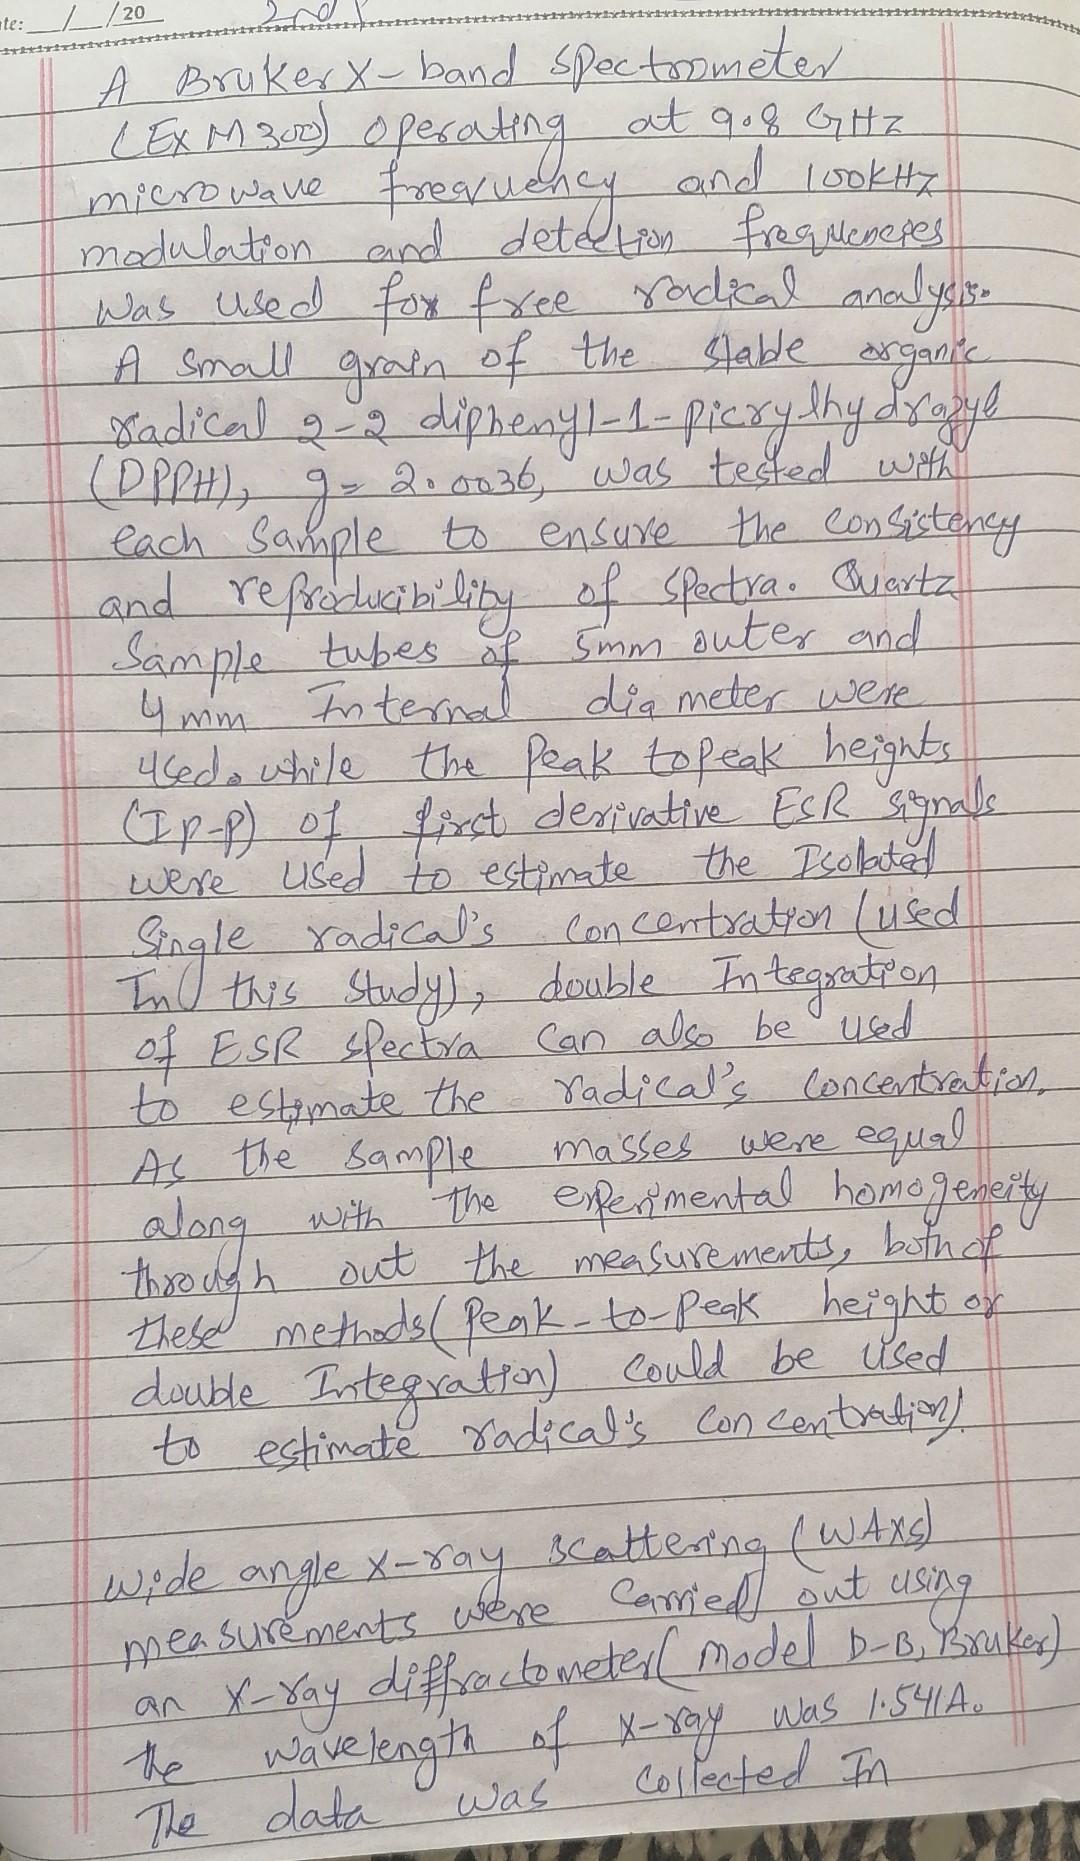 te: / /20 2nd
A Bruker X-band Spectrometer
(EXM300) Operating at 9.8 GHz
microwave frequency and 100kHz
modulation and detection frequencies
was used for free radical analysis.
A small grain of the stable organic
radical 2-2 diphenyl-1-picrylhydrazyl
(DPPH), g= 2.0036, was tested with
each sample to ensure the consistency
and reproducibility of spectra. Quartz
Sample tubes of 5mm outer and
4 mm Internal dia meter were
used. while the Peak toPeak heights
(Ip-p) of first derivative ESR signals
were used to estimate the Isolated
Single radical's concentration (used
In this study), double Integration
of ESR spectra can also be used
to estimate the radical's concentration.
As the sample masses were equal
along with the experimental homogeneity
through out the measurements, both of
these methods( Peak-to-Peak height or
double Integration) could be used
to estimate radical's concentration).
Wide angle X-ray scattering (WAXS)
measurements were carried out using
an X-ray diffractometer( model D-B, Bruker)
the wavelength of X-ray was 1.541A.
The data was collected In